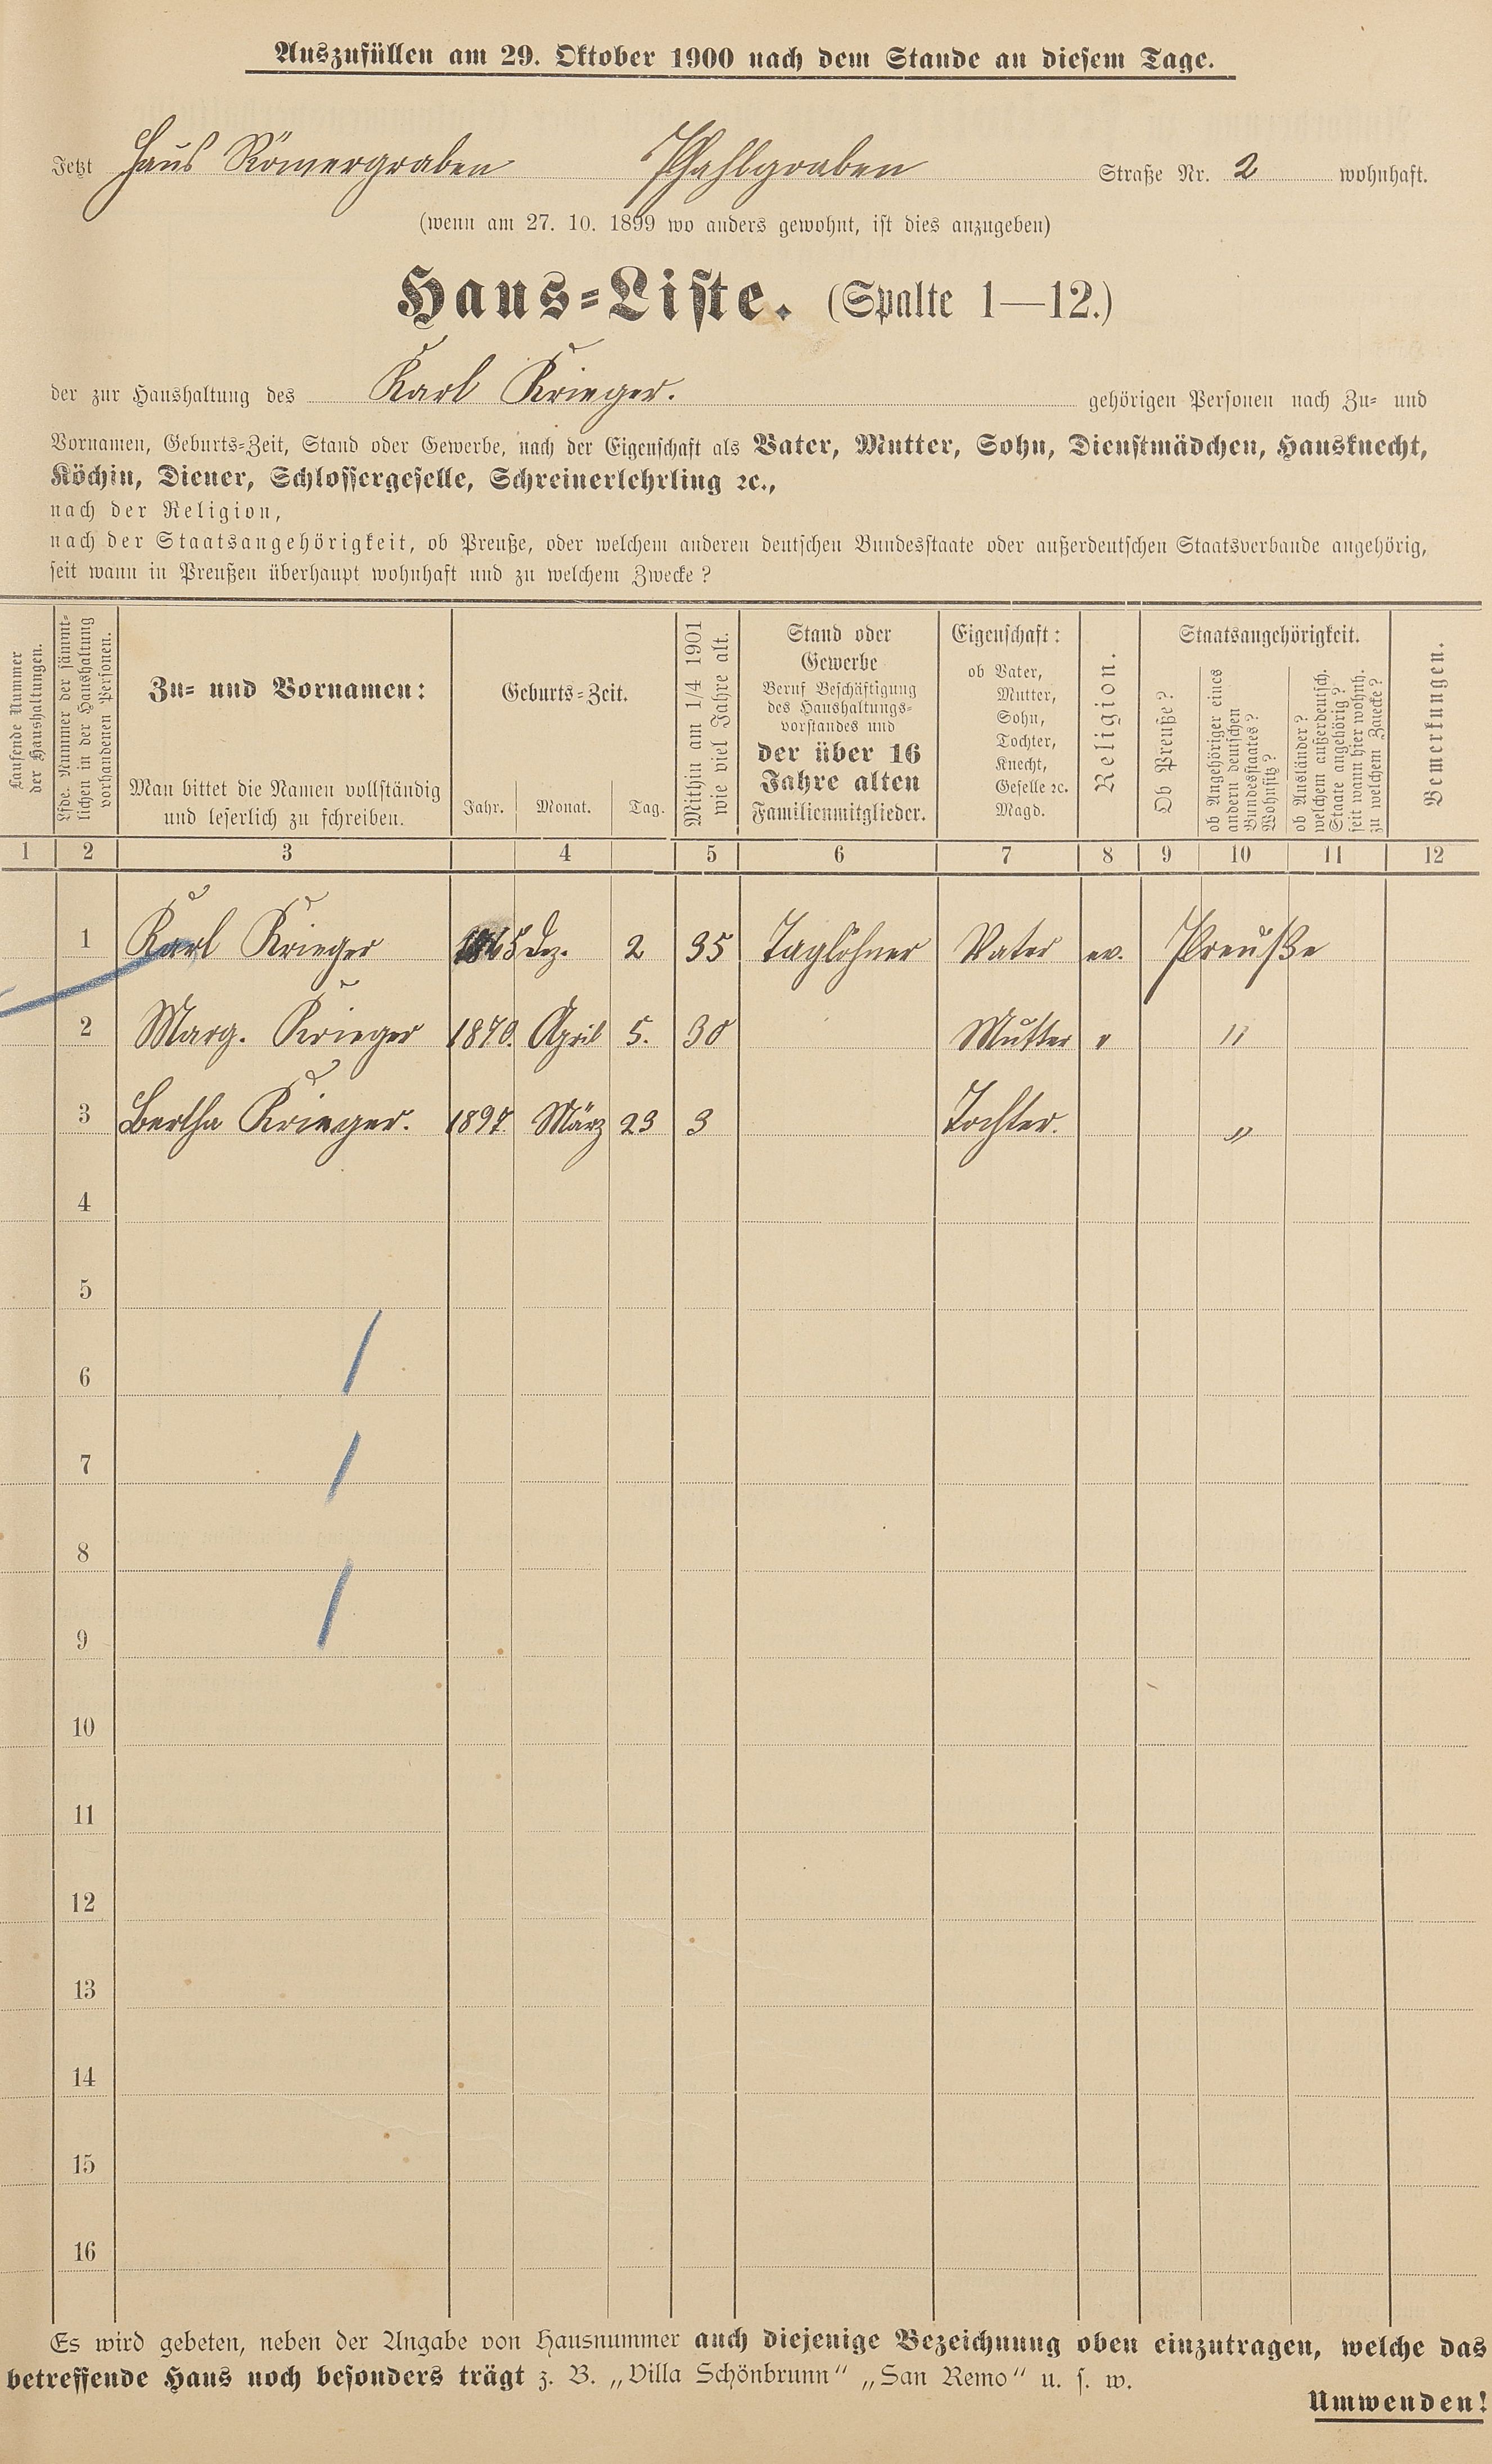 Auszufüllen am 29. Oktober 1900 nach dem Stande an diesem Tage.
Jetzt Haus Römergraben Pfahlgraben Straße Nr. 2 wohnhaft.
(wenn am 27. 10. 1899 wo anders gewohnt, ist dies anzugeben)
Haus-Liste. (Spalte 1—12.)
der zur Haushaltung des Karl Krieger. gehörigen Personen nach Zu- und
Vornamen, Geburts-Zeit, Stand oder Gewerbe, nach der Eigenschaft als Vater, Mutter, Sohn, Dienstmädchen, Hausknecht,
Köchin, Diener, Schlossergeselle, Schreinerlehrling ꝛc.,
nach der Religion,
nach der Staatsangehörigkeit, ob Preuße, oder welchem anderen deutschen Bundesstaate oder außerdeutschen Staatsverbande angehörig,
seit wann in Preußen überhaupt wohnhaft und zu welchem Zwecke?
Laufende Nummer
der Haushaltungen.
Lfde. Nummer der sämmt-
lichen in der Haushaltung
vorhandenen Personen.
Zu- und Vornamen:
Man bittet die Namen vollständig
und leserlich zu schreiben.
Geburts-Zeit.
Jahr. Monat. Tag.
Mithin am 1/4 1901
wie viel Jahre alt.
Stand oder
Gewerbe
Beruf Beschäftigung
des Haushaltungs-
vorstandes und
der über 16
Jahre alten
Familienmitglieder.
Eigenschaft:
ob Vater,
Mutter,
Sohn,
Tochter,
Knecht,
Geselle ꝛc.
Magd.
Religion.
Staatsangehörigkeit.
Ob Preuße?
ob Angehöriger eines
andern deutschen
Bundesstaates?
Wohnsitz?
ob Ausländer?
welchem außerdeutsch.
Staate angehörig?
seit wann hier wohnh.
zu welchem Zwecke?
Bemerkungen.
1 2 3 4 5 6 7 8 9 10 11 12
1 Karl Krieger 1865 Dez. 2 35 Taglöhner Vater ev. Preuße
2 Marg. Krieger 1870. April 5. 30 Mutter " "
3 Bertha Krieger. 1897 März 23 3 Tochter. "
4
5
6
7
8
9
10
11
12
13
14
15
16
Es wird gebeten, neben der Angabe von Hausnummer auch diejenige Bezeichnung oben einzutragen, welche das
betreffende Haus noch besonders trägt z. B. „Villa Schönbrunn“ „San Remo“ u. s. w.
Umwenden!